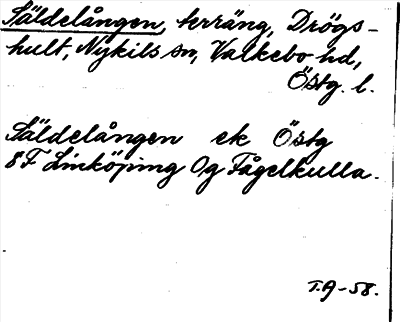 Säldelången, terräng, Drögs-
hult, Nykils sn, Valkebo hd,
Östg. l.
Säldelången ek Östg
8F Linköping Og Fågelkulla.
T.A-58.